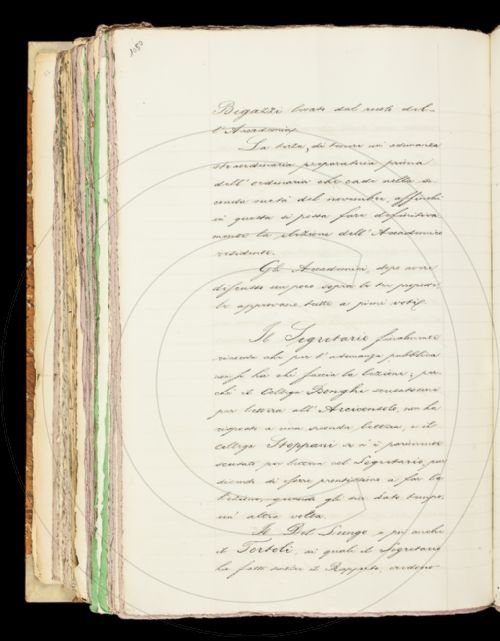 1080
Bigazzi levato dal ruolo del-
l'Accademia.
La terza, di tenere un'adunanza
straordinaria preparatoria prima
dell'ordinaria che cade nella se-
conda metà del novembre, affinchè
in questa si possa fare definitiva
mente la elezione dell'Accademico
residente.
Gli Accademici, dopo avere
discusso un poco sopra le tre proposte,
le approvano tutte a pieni voti.
Il Segretario finalmente
ricorda che per l'adunanza pubblica
non si ha chi faccia la lezione; per-
chè il Collega Bonghi scusatosene
per lettera all'Arciconsolo, non ha
risposto a una seconda lettera, e il
collega Stoppani se n'è parimente
scusato per lettera col Segretario, pur
dicendo di essere prontissimo a far la
lezione, quando gli sia dato tempo,
un'altra volta.
Il Del Lungo e poi anche
il Tortoli, ai quali il Segretario
ha fatto sentire il Rapporto, credono